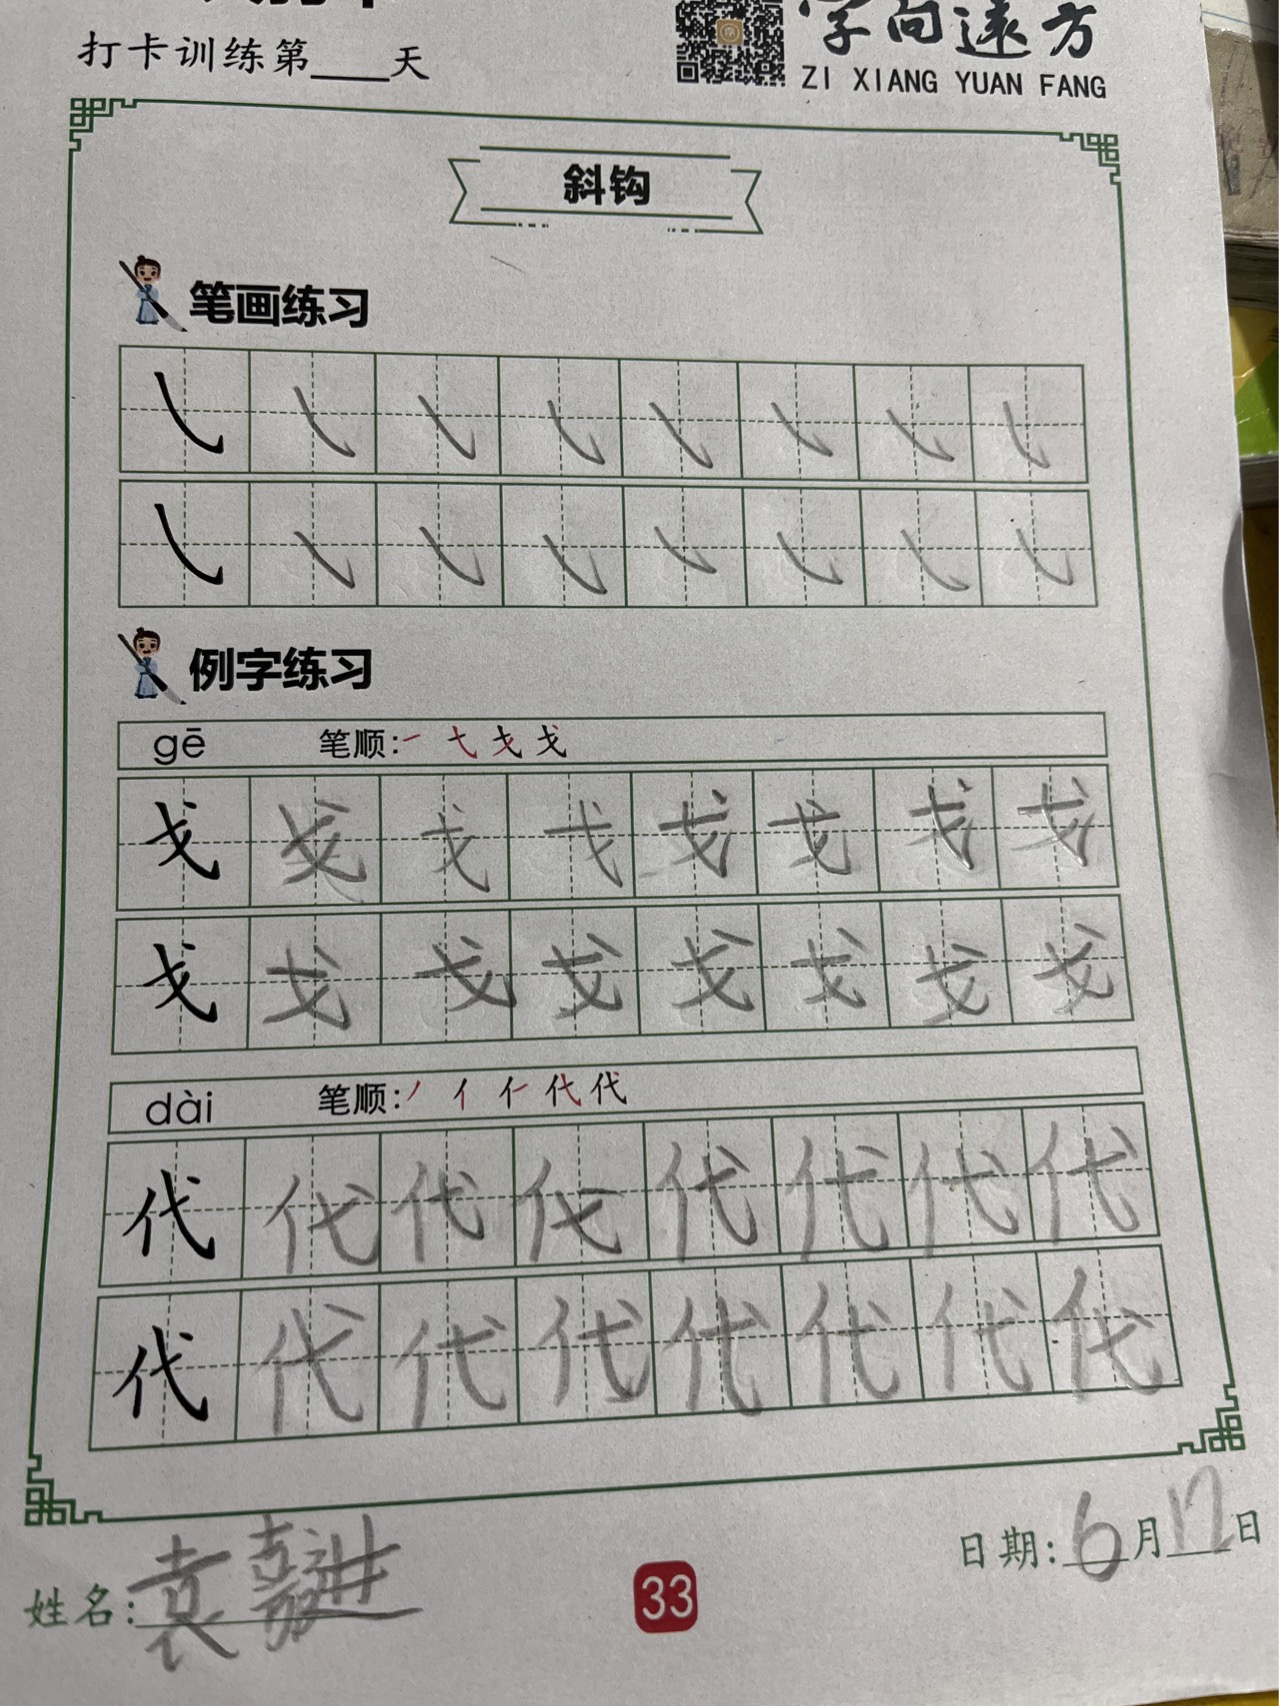 打卡训练第____天
字向远方
ZI XIANG YUAN FANG
斜钩
笔画练习
例字练习
gē 笔顺:一 弋 戈 戈
戈 戈 戈 戈 戈 戈 戈 戈
戈 戈 戈 戈 戈 戈 戈 戈
dài 笔顺:丿 亻 仁 代 代
代 代 代 代 代 代 代 代
代 代 代 代 代 代 代 代
姓名:袁嘉进
33
日期:6月17日